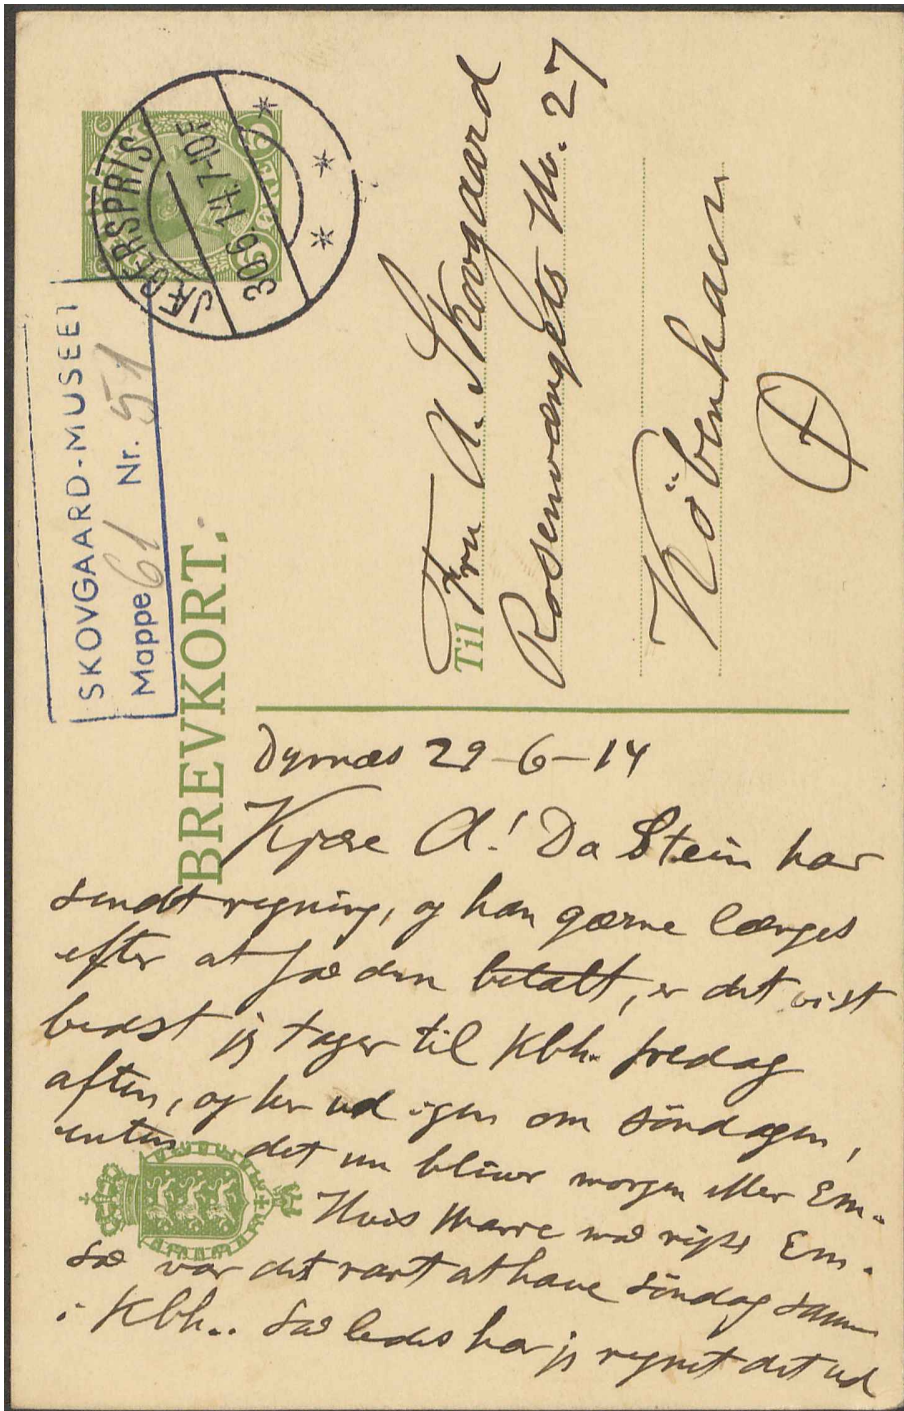 JÆGERSPRIS
30.6.14. 7-10F
SKOVGAARD-MUSEET
Mappe 61 Nr. 51
BREVKORT.
Til Fru A. Skovgaard
Rosenvængets Hv. 27
Köbenhavn
Ø
Dyrnæs 29-6-14
Kjære A! Da Stein har
sendt regning, og han gærne længes
efter at faa den betalt, er det vist
bedst jeg tager til Kbh. fredag
aften, og her ud igen om söndagen,
enten det nu bliver morgen eller Em.
Hvis Marre må rejse Em.
så var det rart at have söndag sammen
i Kbh.. Saaledes har jeg regnet det ud